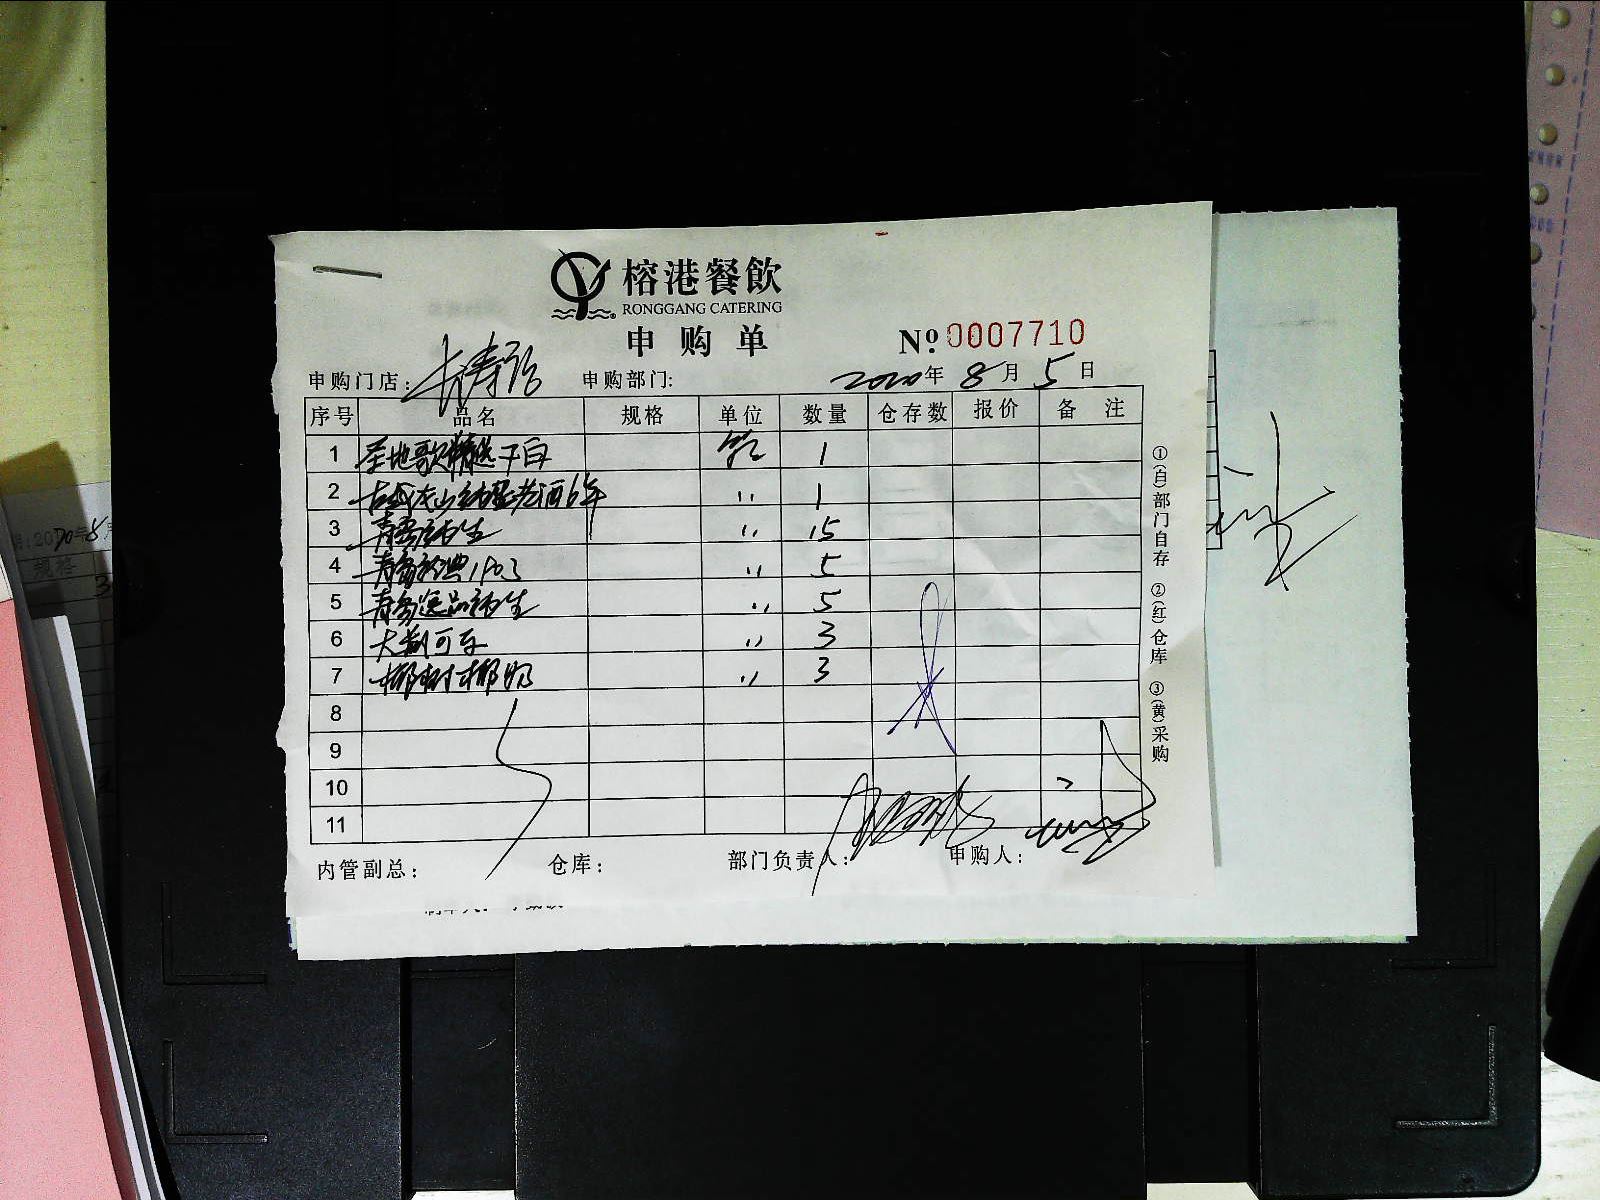 榕港餐飲
RONGGANG CATERING
申购单
№ 0007710
申购门店: 长寿路 申购部门: 2020年8月5日
序号 品名 规格 单位 数量 仓存数 报价 备注
1 圣地歌精选干白 箱 1
2 老酒6年 〃 1
3 青岛纯生 〃 15
4 青岛经典1903 〃 5
5 青岛逸品纯生 〃 5
6 大瓶可乐 〃 3
7 椰树椰奶 〃 3
8
9
10
11
内管副总: 仓库: 部门负责人: 申购人:
①(白)部门自存 ②(红)仓库 ③(黄)采购
规格